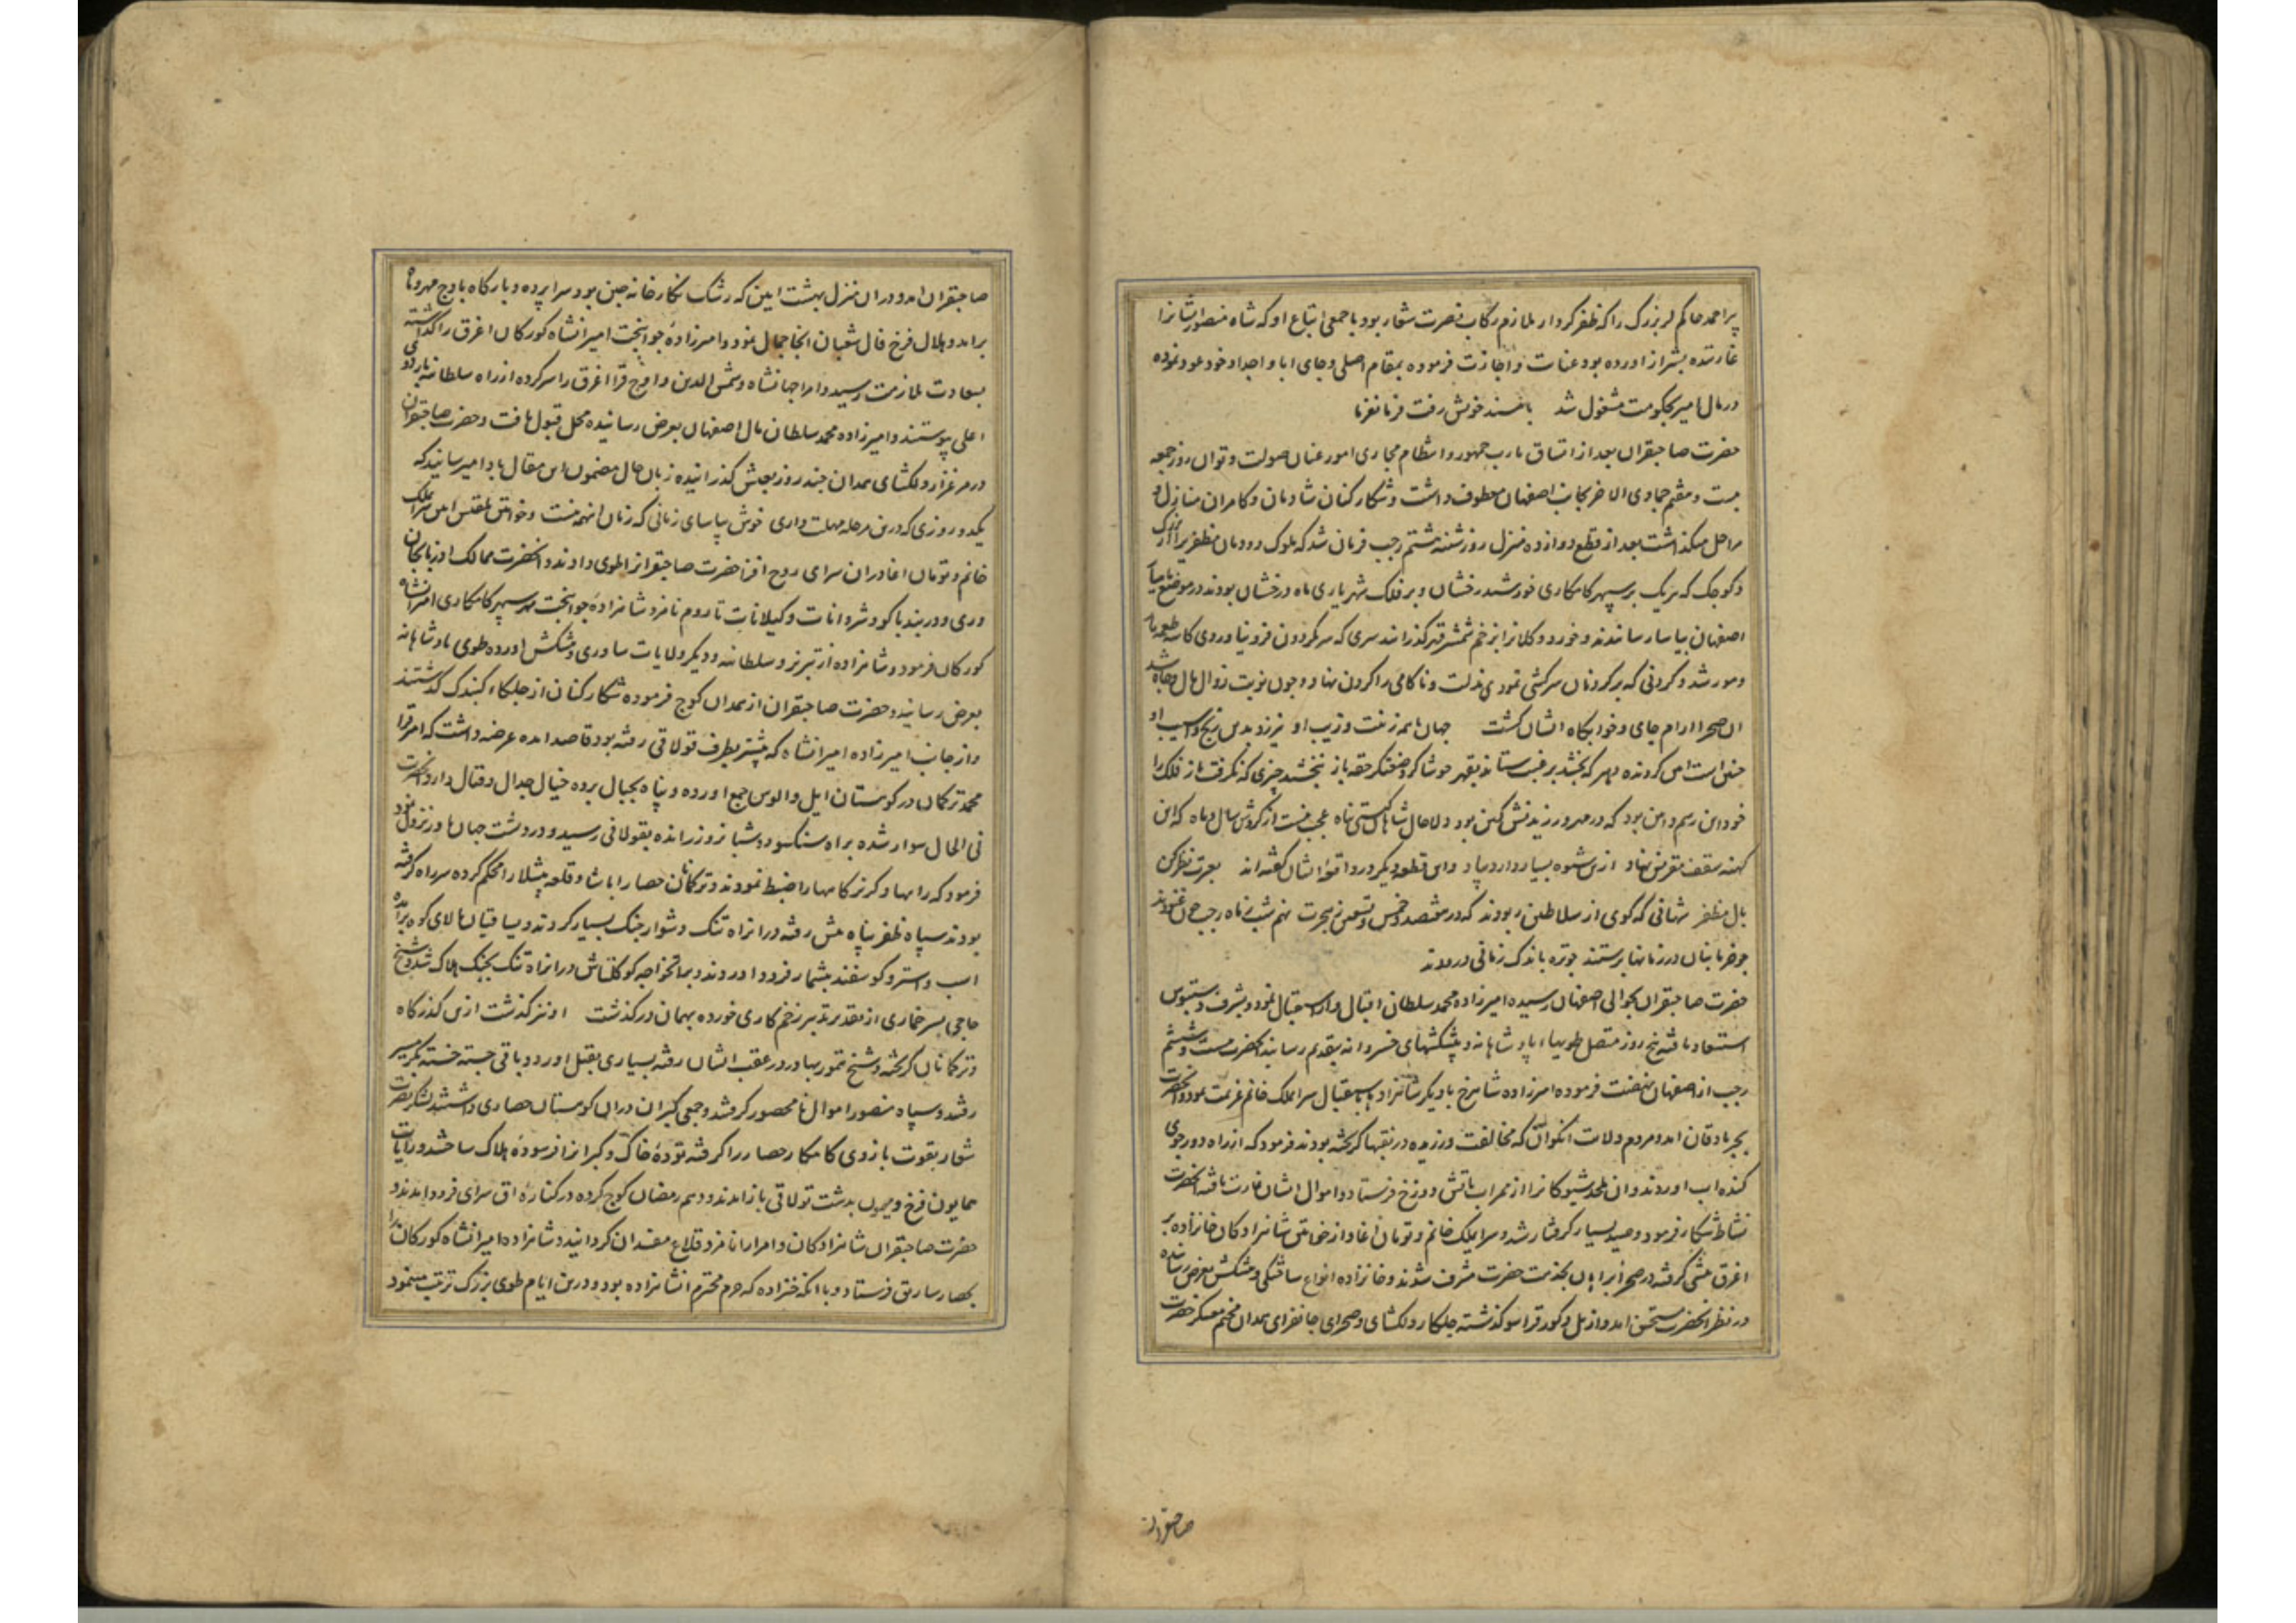 پیر احمد حاکم لر بزرک را که ظفر کردار ملازم رکاب نصرت شعار بود با جمعی اتباع او که شاه منصور ایشانرا
غارتیده بشیراز اورده بود عنایت و اجازت فرموده بمقام اصلی و جای ابا و اجداد خود عود نموده
در مال امیر بحکومت مشغول شد با مسند خویش رفت فرمانفرما
حضرت صاحبقران بعد از اتساق مارب جمهور و انتظام مجاری امور عنان صولت و توان روز جمعه
بیست و هفتم جمادی الاخر بجانب اصفهان معطوف داشت و شکار کنان شادمان و کامران منازل و
مراحل میکذاشت بعد از قطع دوازده منزل روز شنبه هشتم رجب فرمان شد که ملوک دودمان مظفر بزرک
و کوجک که هریک بر سپهر کامکاری خورشید رخشان و بر فلک شهریاری ماه درخشان بودند در موضع
اصفهان بیاسا رسانیدند و خورد و کلانرا بزخم شمشیر قهر کذرانیدند سری که سر بکردون فرو نیاوردی کاسه طعمه مار
و مور شد و کردنی که بر کردنان سرکشی نمودی بذلت و ناکامی را کردن نهاد و جون نوبت زوال مال و جاه شد
ان صحرا ارام جای و خوابکاه ایشان کشت جهان با همه زینت و زیب او نیرزد بدین رنج و اسیب او
جنین است این کردنده مهر که بخشد برغبت ستاند بقهر خوشا کرد صفتکر حقه باز نبخشد جیزی که نکرفت باز فلک را
خود این رسم و این بود که در مهر ورزیدنش کین بود دلا حال شاهان کیتی پناه عجب نیست از کردش سال و ماه که این
کهنه سقف مقرنس نهاد ازین شیوه بسیار دارد بیاد و این قطعه دیکر در واقعه ایشان کفته اند بعبرت نظر کن
بال مظفر شهانی که کوی از سلاطین ربودند که در هفتصد و خمس و تسعین ز هجرت نهم شب ز ماه رجب جون غنودند
جو خرما بنان در زمانها برستند جو تره باندک زمانی درودند
حضرت صاحبقران بحوالی اصفهان رسیده امیرزاده محمد سلطان اقبال وار استقبال نمود و بشرف دستبوس
استسعاد یافته پنج روز متصل طویهاء پادشاهانه و پیشکشهای خسروانه بتقدیم رسانید انحضرت بیست و ششم
رجب از اصفهان نهضت فرموده امیرزاده شاهرخ با دیکر شاهزاد باستقبال سرایملک خانم عزیمت نمود و انحضرت
بجربادقان امد و مردم ولایت انکوان که مخالفت ورزیده در نقبها کریخته بودند فرمود که از راه دور جوی
کنده اب اوردند و ان ملحد شیوکانرا از ممر اب باتش دوزخ فرستاد و اموال ایشان غارت یافته انحضرت
نشاط شکار فرمود و صید بسیار کرفتار شد و سرایملک خانم و تومان آغا و از خواتین شاهزادکان خانزاده بر
اغرق پیشی کرفته در صحرا بخدمت حضرت مشرف شدند و خانزاده انواع ساقتکی و پیشکش بعرض رسانیده
در نظر انحضرت مستحسن امد و از پل و کور قراسو کذشته جلکاء دلکشای و صحرای جانفزای همدان مخیم معسکر حضرت
صاحبقران
صاحبقران امد و در ان منزل بهشت ایین که رشک نکارخانه جین بود سراپرده و بارکاه باوج مهر و ماه
برامد و هلال فرخ فال شعبان انجا جمال نمود و امیرزاده جوانبخت امیرانشاه کورکان اغرق را کذاشته
بسعادت ملازمت رسید و امرا جهانشاه و شمس الدین و اوج قرا اغرق را سر کرده از راه سلطانیه باردوی
اعلی پیوستند و امیرزاده محمد سلطان مال اصفهان بعرض رسانیده محل قبول یافت و حضرت صاحبقران
در مرغزار دلکشای همدان جند روز بعیش کذرانیده زبان حال مضمون این مقال بادا میرسانید که
یکدو روزی که درین مرحله مهلت داری خوش بیاسای زمانی که زمان اینهمه نیست و خواتین بلقیس ایین سرایملک
خانم و تومان اغا در ان سرای روح افزا حضرت صاحبقرانرا طوی دادند و انحضرت ممالک اذربایجان
و ری و دربند باکو و شروانات و کیلانات تا روم نامزد شاهزاده جوانبخت مهر سپهر کامکاری امیرانشاه
کورکان فرمود و شاهزاده از تبریز و سلطانیه و دیکر ولایات ساوری و پیشکش اورده طوی پادشاهانه
بعرض رسانید و حضرت صاحبقران از همدان کوج فرموده شکار کنان از جلکاء کنبدک کذشتند
و از جانب امیرزاده امیرانشاه که پیشتر بطرف قولاقی رفته بود قاصد امده عرضه داشت که امیر قرا
محمد ترکمان در کوهستان ایل و الوس جمع اورده و پناه بجبال برده خیال جدال و قتال دارد انحضرت
فی الحال سوار شده براه سنکسور و دو شبانروز رانده بقولاقی رسید و در دشت جبان ها ور نزول نمود
فرمود که راهها و کریزکاهها را ضبط نمودند و ترکمانان حصار ابابثا و قلعه بیشلار را محکم کرده سر راه کرفته
بودند سپاه ظفر پناه پیش رفته در ان راه تنک و دشوار جنک بسیار کردند و یساقیان بالای کوه برآمده
اسب و استر و کوسفند بیشمار فرود اوردند و براتخواجه کوکلتاش در ان راه تنک بجنک هلاک شد و شیخ
حاجی پسر خماری از تقدیر تدبیر زخم کاری خورده بهمان درکذشت او نیز کذشت ازین کذرکاه
و ترکمانان کریخته و شیخ تمور بهادر در عقب ایشان رفته بسیاری بقتل اورد و باقی جسته خسته بکرمسیر
رفتند و سپاه منصور اموال نامحصور کرفتند و جمعی کبران در ان کوهستان حصاری داشتند لشکر نصرت
شعار بقوت بازوی کامکار حصار را کرفته توده خاک و کبرانرا فرسوده هلاک ساختند و رایات
همایون فرخ و میمون بدشت قولاقی باز امدند و دهم رمضان کوج کرده در کناره اق سرای فرود امدند و
حضرت صاحبقران شاهزادکان و امرا را نامزد قلاع مفسدان کردانید و شاهزاده امیرانشاه کورکان را
بحصار سارق فرستاد و با انکه خنزاده که حرم محترم ان شاهزاده بود و درین ایام طوی بزرک ترتیب مینمود